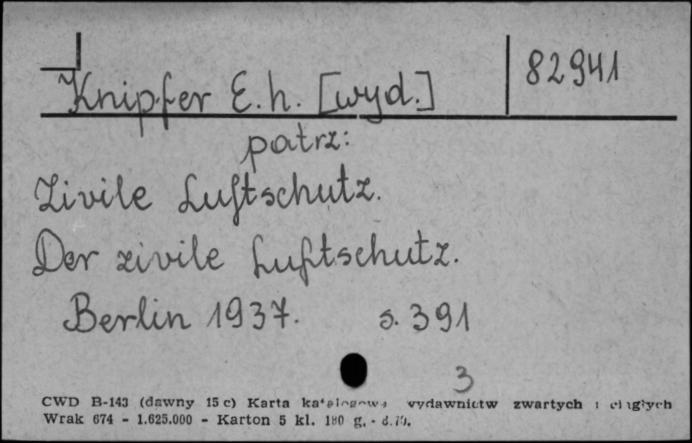 82941
Knipfer E.h. [wyd.]
patrz:
Zivile Luftschutz.
Der zivile Luftschutz.
Berlin 1937. s. 391
3
CWD B-143 (dawny 15 c) Karta katalogowa wydawnictw zwartych i ciągłych
Wrak 674 - 1.625.000 - Karton 5 kl. 180 g. -